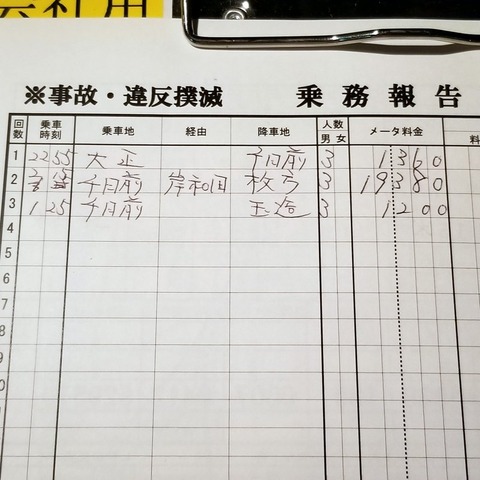 会社用
※事故・違反撲滅 乗務報告
回数 乗車時刻 乗車地 経由 降車地 人数 男 女 メータ料金 料
1 22 55 大正 千日前 3 1360
2 千日前 岸和田 枚方 3 19380
3 1 25 千日前 玉造 3 1200
4
5
6
7
8
9
0
1
2